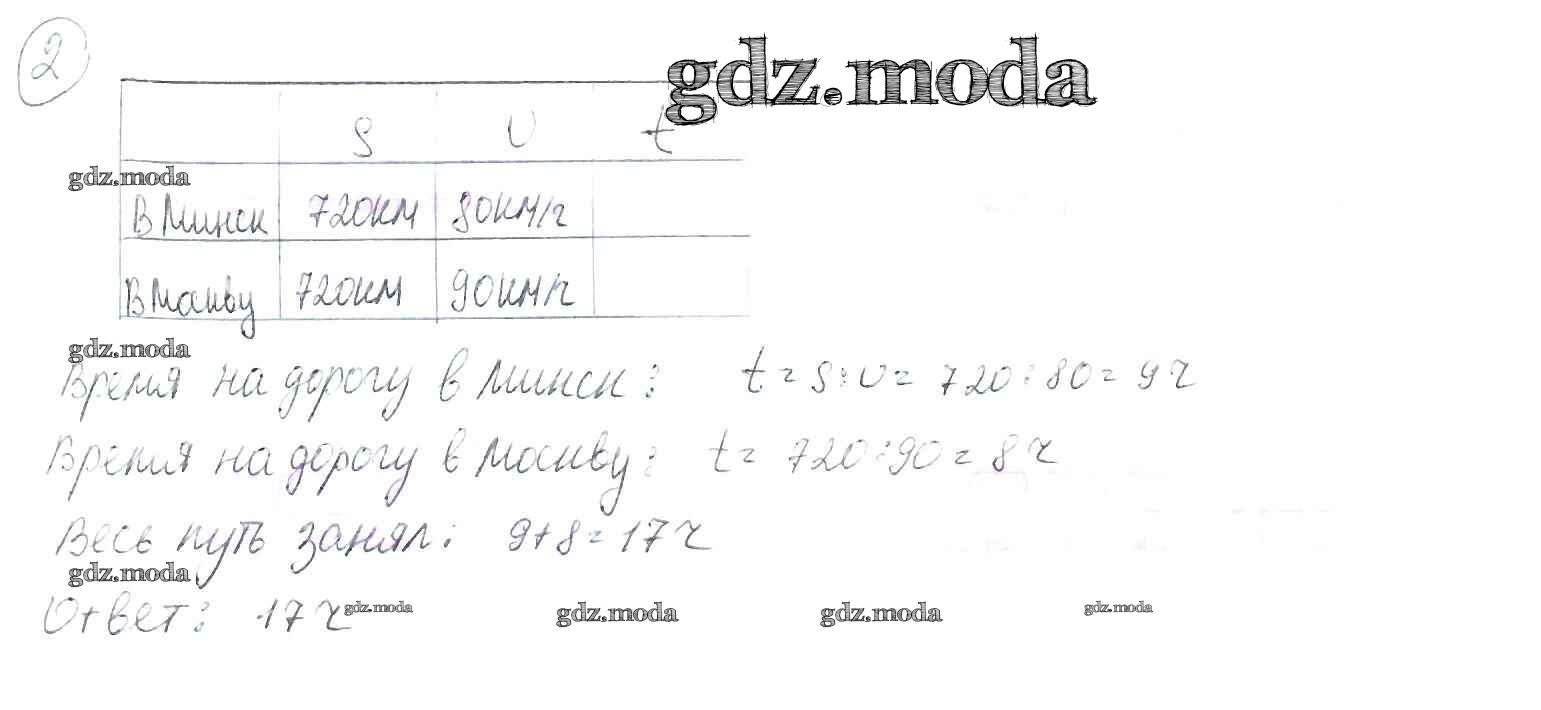 2
gdz.moda
S U t
gdz.moda
В Минск 720км 80км/ч
В Москву 720км 90км/ч
gdz.moda
Время на дорогу в Минск: t = S : U = 720 : 80 = 9 ч
Время на дорогу в Москву: t = 720 : 90 = 8 ч
Весь путь занял: 9+8=17 ч
gdz.moda
Ответ: 17 ч
gdz.moda gdz.moda gdz.moda gdz.moda